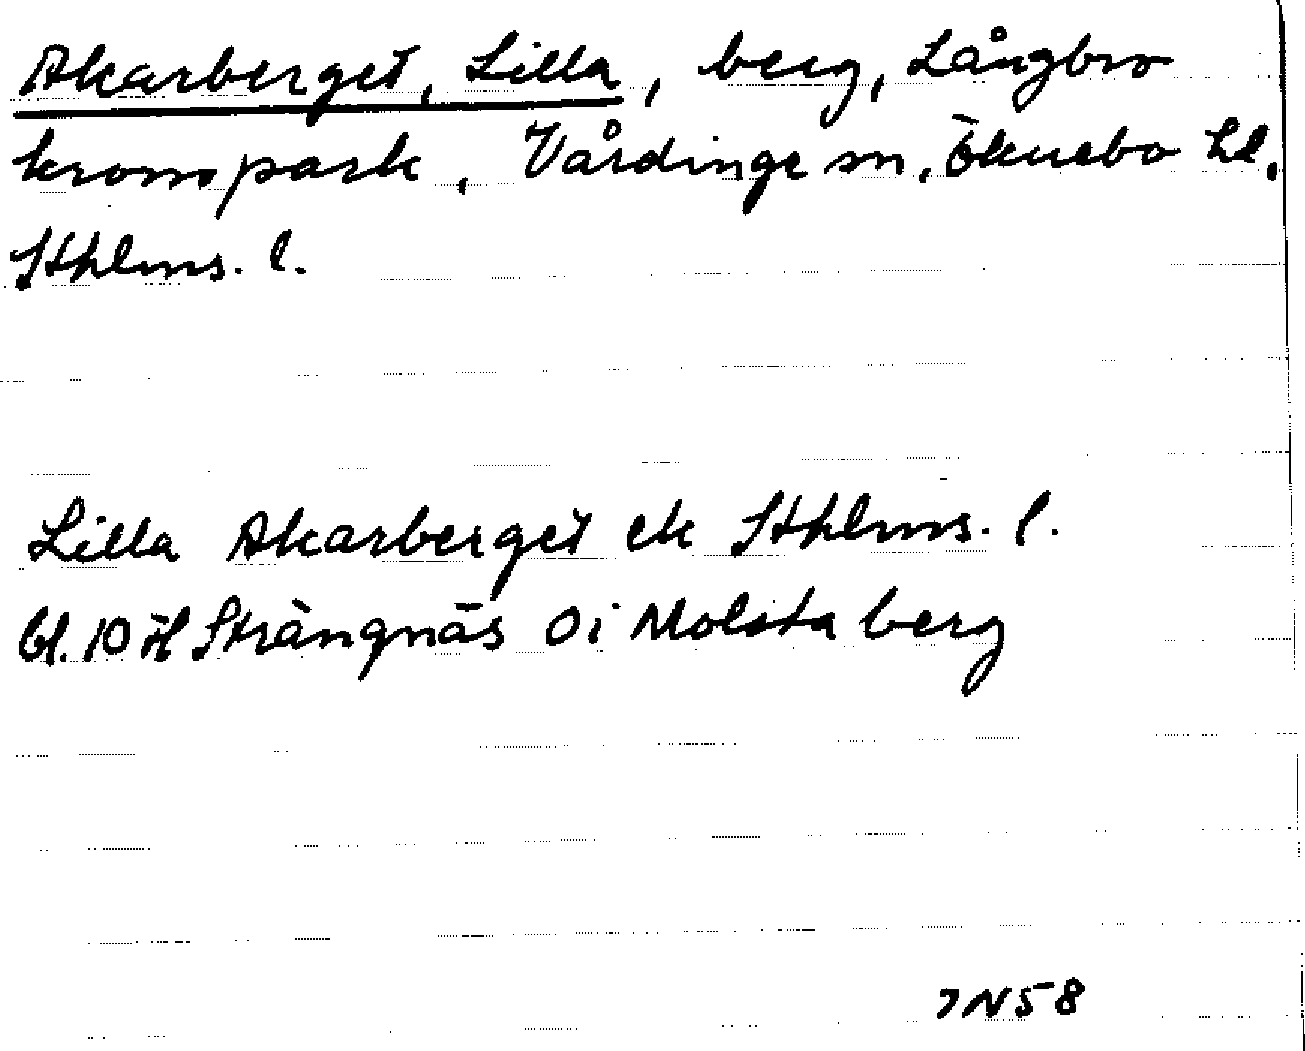 Akarberget, Lilla, berg, Långbro
kronopark, Vårdinge sn, Öknebo hd,
Sthlms. l.
Lilla Akarberget ek Sthlms. l.
bl. 10 H Strängnäs Oi Molsta berg
JN58